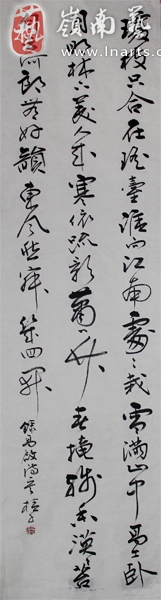 嶺南藝
www.lnarts.c
瓊枝只合在瑤臺誰向江南處々栽雪滿山中高士臥
月明林下美人來寒依疏影蕭々竹春掩殘香漠苔
自去何郎無好韻東風愁寂幾回開
錄高啟詩